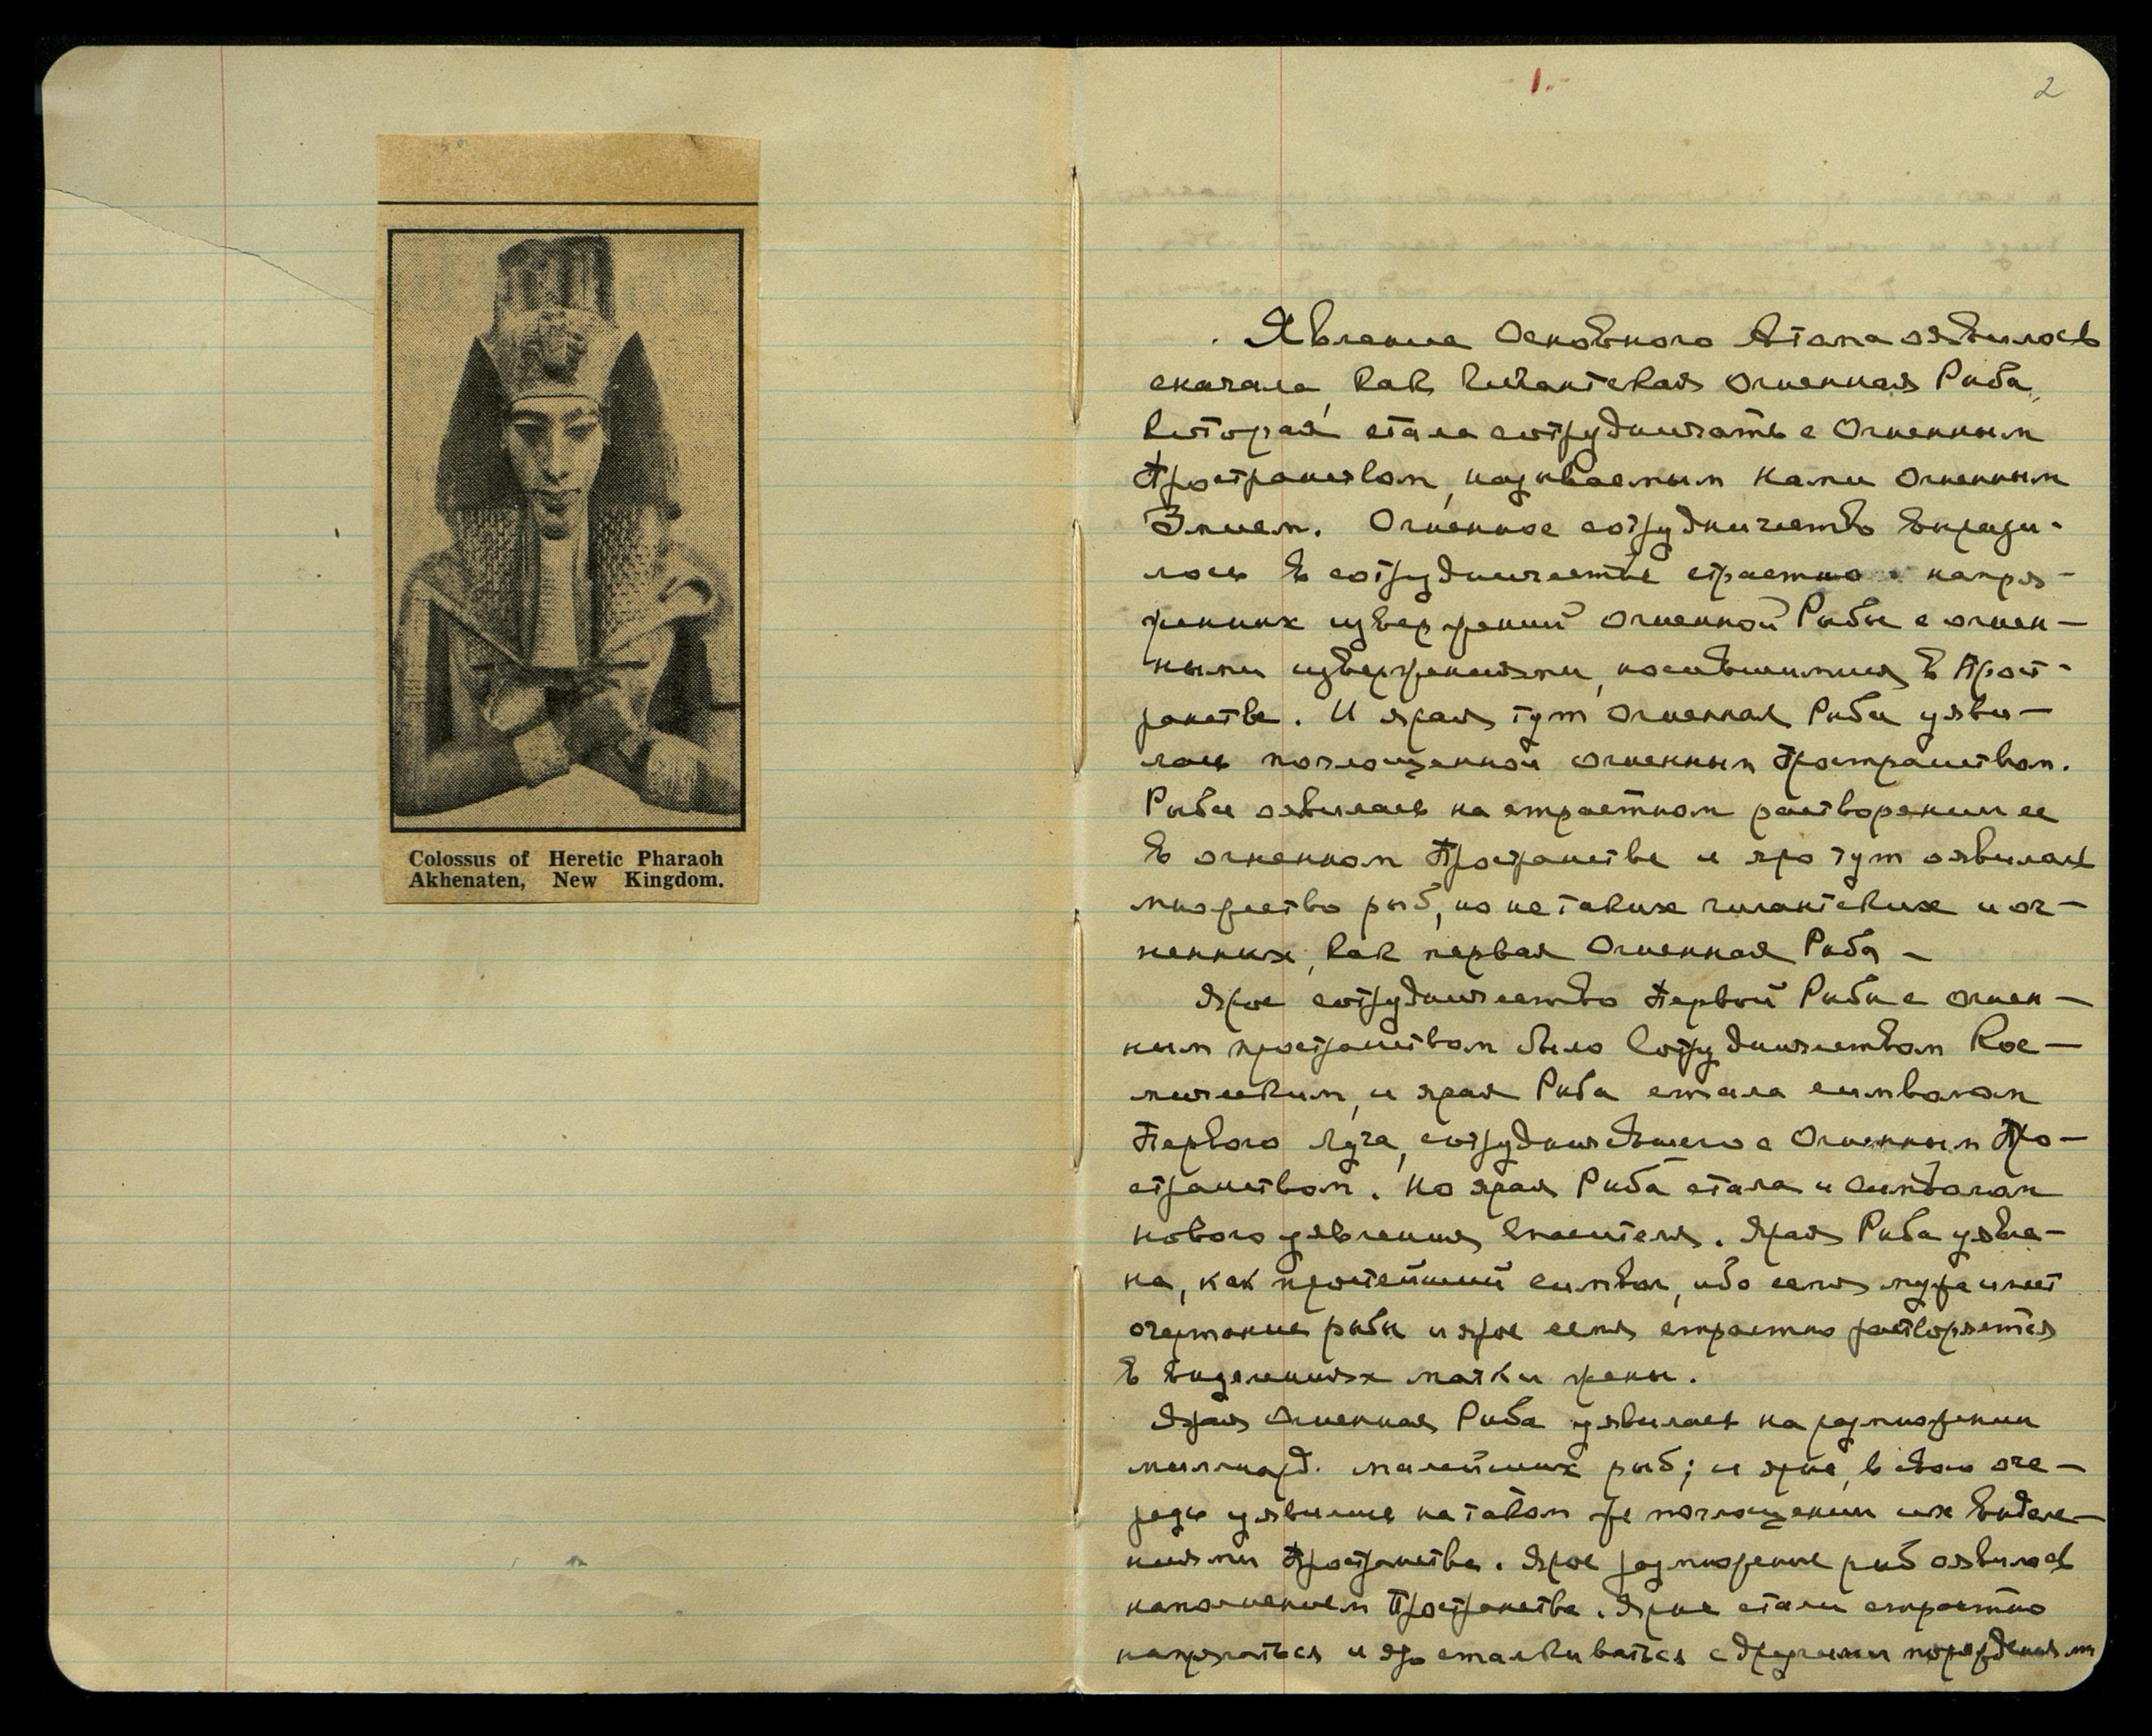 Colossus of Heretic Pharaoh
Akhenaten, New Kingdom.
1.
2
Явление Основного Атома оявилось
сначала, как гигантская Огненная Рыба,
которая стала сотрудничать с Огненным
Пространством, называемым Нами Огненным
Змием. Огненное сотрудничество вырази-
лось в сотрудничестве страстно напря-
женных извержений Огненной Рыбы с огнен-
ными извержениями, носившимися в Прост-
ранстве. И ярая тут Огненная Рыба уяви-
лась поглощенной огненным Пространством.
Рыба оявилась на страстном растворении ее
в огненном Пространстве и яро тут оявилось
множество рыб, но не таких гигантских и ог-
ненных, как первая Огненная Рыба —
Ярое сотрудничество Первой Рыбы с огнен-
ным пространством было Сотрудничеством Кос-
мическим, и ярая Рыба стала символом
Первого Луча, сотрудничавшего с Огненным Про-
странством. Но ярая Рыба стала и символом
нового уявления Спасителя. Ярая Рыба уявле-
на, как простейший символ, ибо семя мужа имеет
очертание рыбы и ярое семя страстно растворяется
в выделениях матки жены.
Ярая Огненная Рыба уявилась на размножении
миллиард. малейших рыб; и ярые, в свою оче-
редь уявились на таком же поглощении их выделе-
ниями Пространства. Ярое размножение рыб оявилось
наполнением Пространства. Ярые стали страстно
напрягаться и яро сталкиваться с другими порождениями